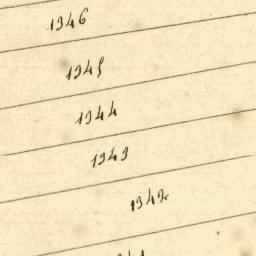 1946
1945
1944
1943
1942